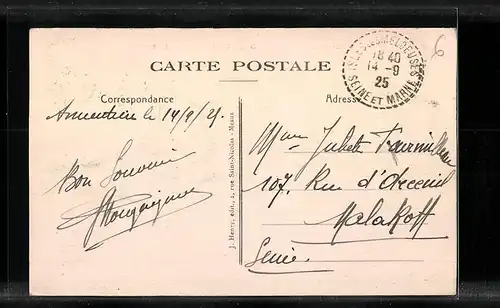 CARTE POSTALE
Correspondance
Adresse
ISLES-LES-MELDEUSES
18 40
14 - 9
25
SEINE ET MARNE
6
le 14/9/25.
Bon Souvenir
J. Henry, édit., 2, rue Saint-Nicolas - Meaux
Mme Juliette
107, Rue d'Arcueil
Malakoff
Seine